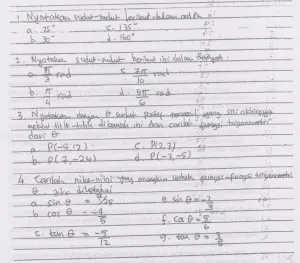 1. Nyatakan sudut-sudut berikut dalam radian
a. 25° c. 135°
b. 30° d. 160°
2. Nyatakan sudut-sudut berikut ini dalam derajat
a. π/3 rad c. 7π/10 rad
b. π/4 rad d. 5π/6 rad
3. Nyatakan θ sudut pada posisi yang sisi akhirnya
melalui titik-titik dibawah ini dan carilah fungsi trigonometri
dari θ
a. P(-5,12) c. P(2,3)
b. P(7,-24) d. P(-2,-5)
4. Carilah nilai-nilai yang mungkin untuk fungsi-fungsi trigonometri
θ jika diketahui
a. sin θ = 7/25 e. sin θ = -2/3
b. cos θ = -4/5 f. cos θ = 5/6
c. tan θ = -5/12 g. tan θ = 3/5